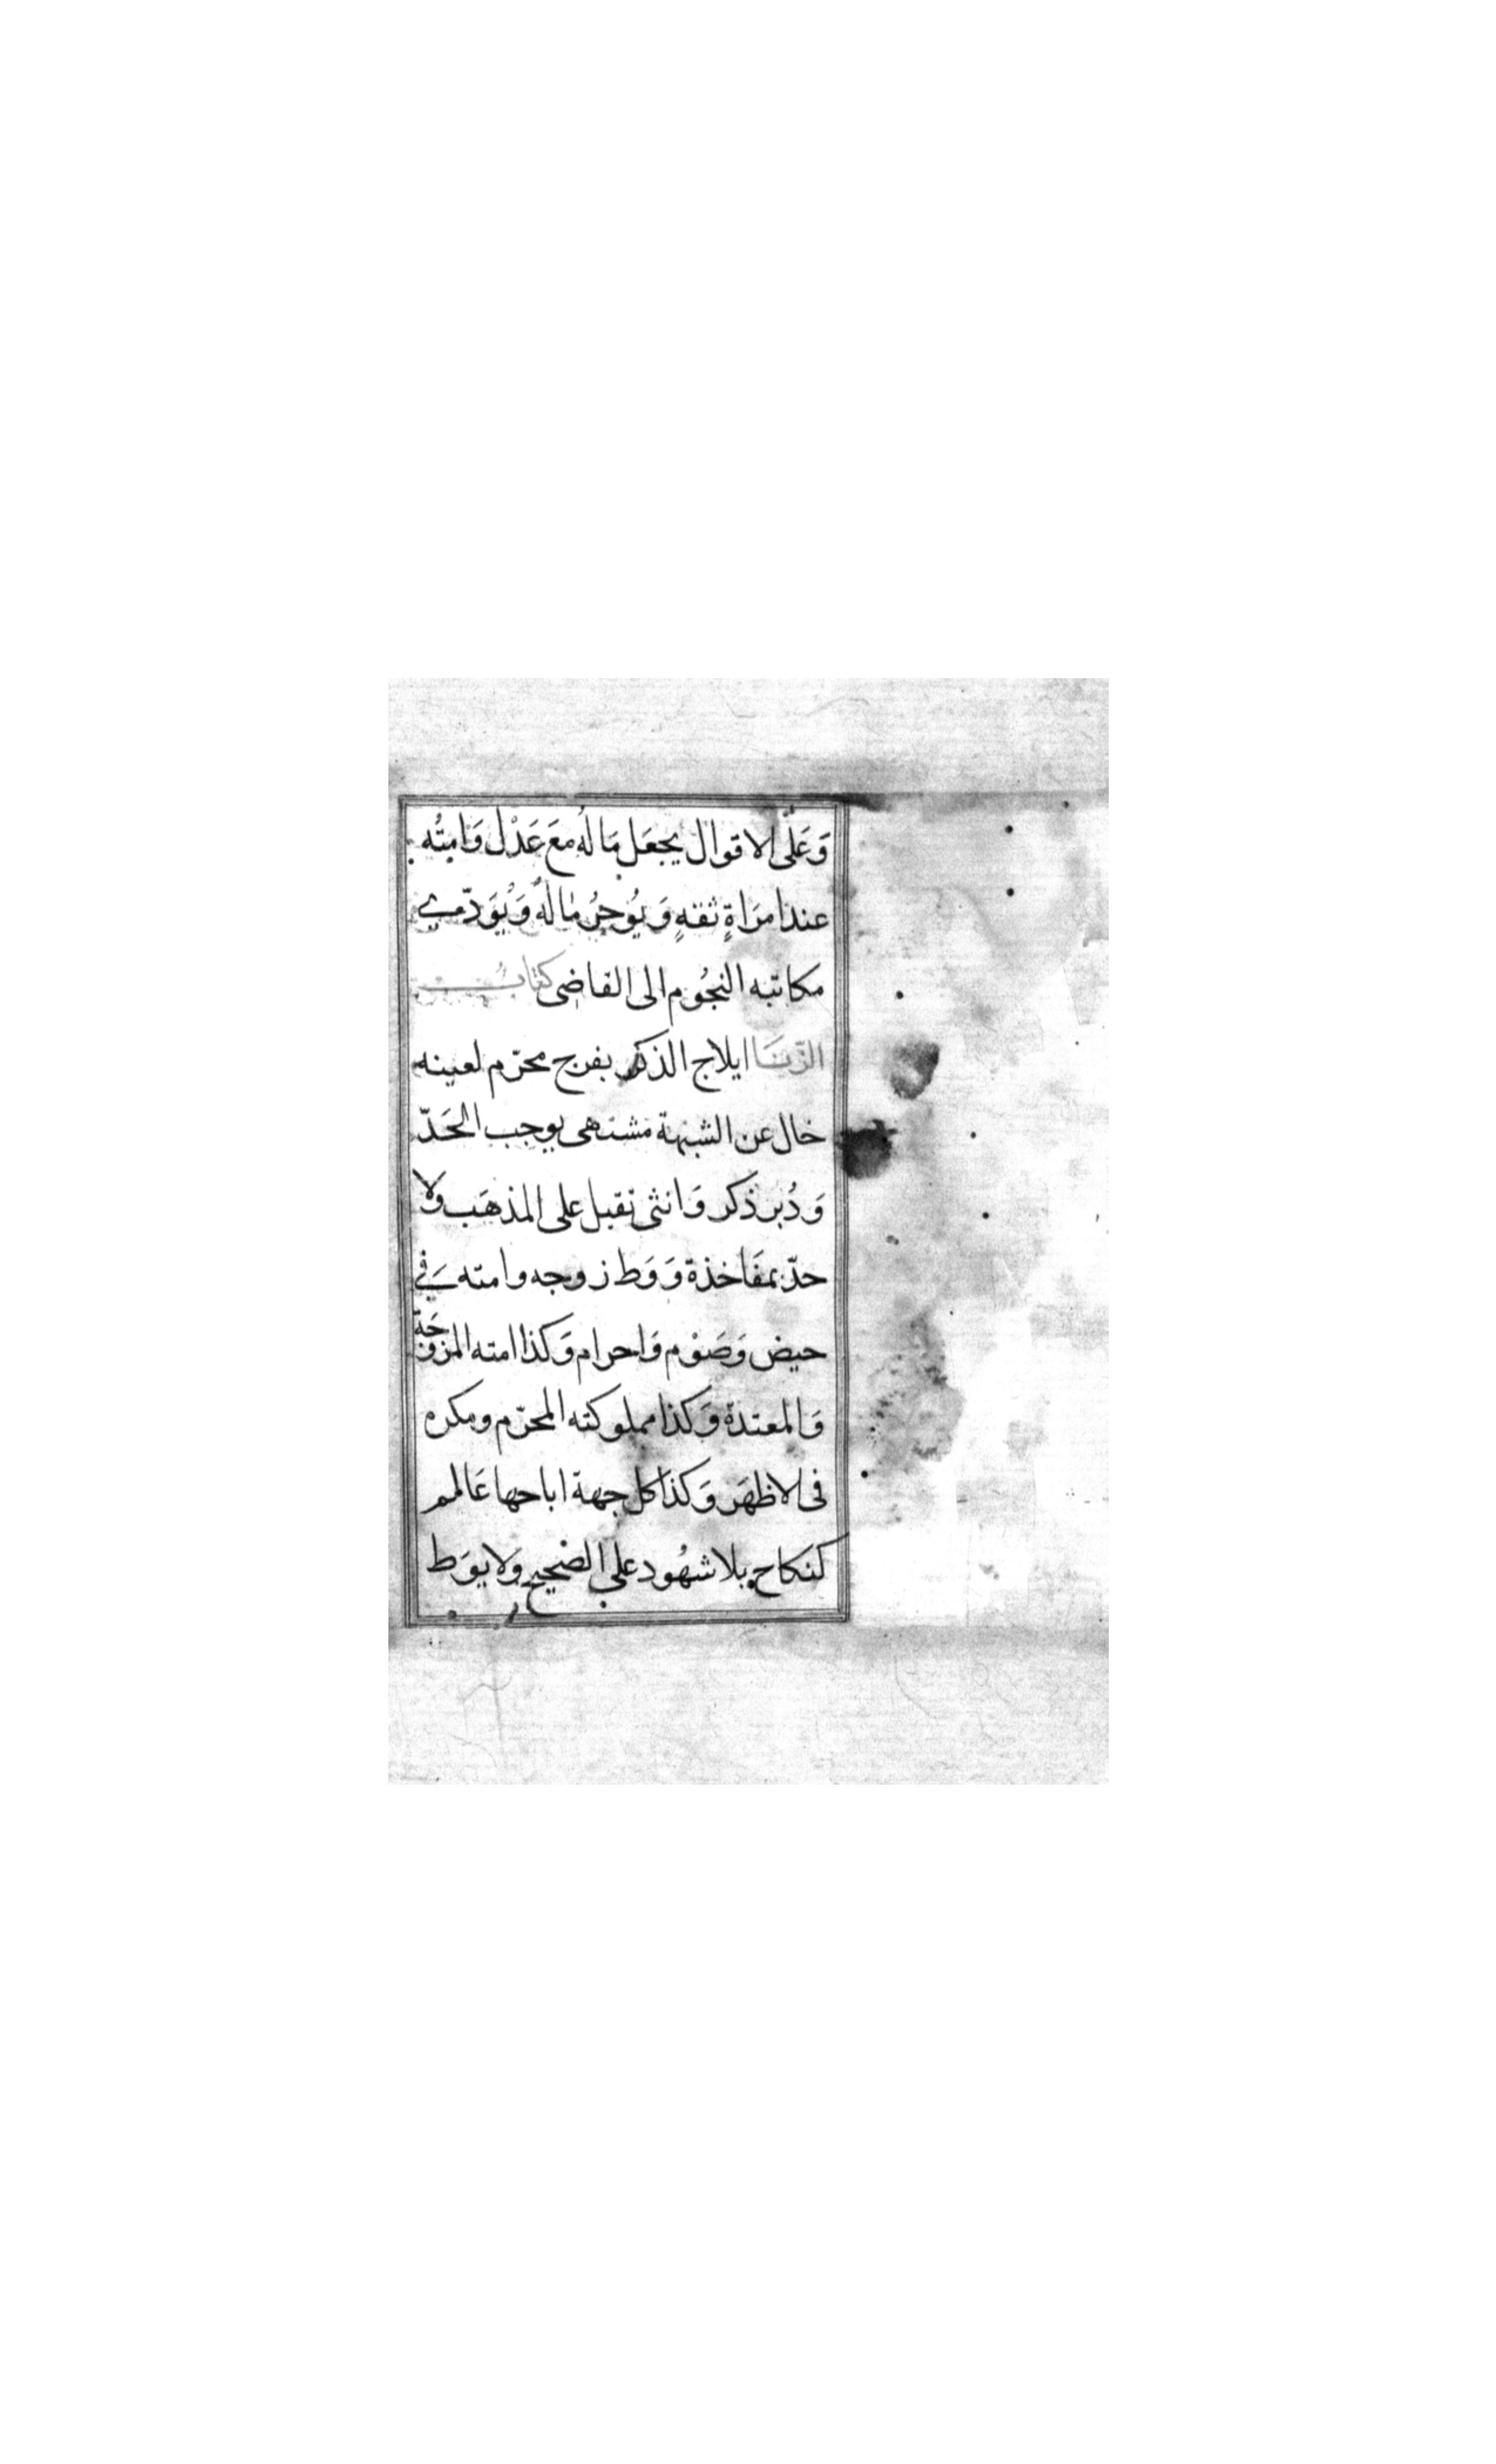 وَعَلَى الاقوال يجعَل مَالُه معَ عَدْل وَامتُه
عند امرَاةٍ ثقهٍ وَيُوجرُ مَالُهُ وَيُوَدّى
مكاتبه النجُوم الى القاضى كتاب
الزّنَا ايلاج الذكر بفرج محرّم لعينه
خال عن الشبهة مشتهى يوجب الحَدّ
وَدُبر ذكر وَانثى نقبل على المذهَب ولا
حدّ بمفَاخذة وَوَط زوجه وامته فى
حيض وَصَوْم وَاحرام وَكذا امته المزوّجَة
وَالمعتدة وَكذا مملوكته المحرّم ومكره
فى الاظهَر وَكذا كل جهة اباحها عَالم
كنكاح بلا شهُود على الصحيح ولا بوَط